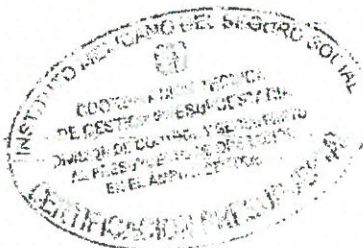 INSTITUTO MEXICANO DEL SEGURO SOCIAL
COORDINACIÓN TÉCNICA
DE GESTIÓN PRESUPUESTARIA
DIVISIÓN DE CONTROL Y SEGUIMIENTO
AL PRESUPUESTO DE OPERACIÓN
EN EL ÁMBITO
CERTIFICACIÓN PRESUPUESTAL